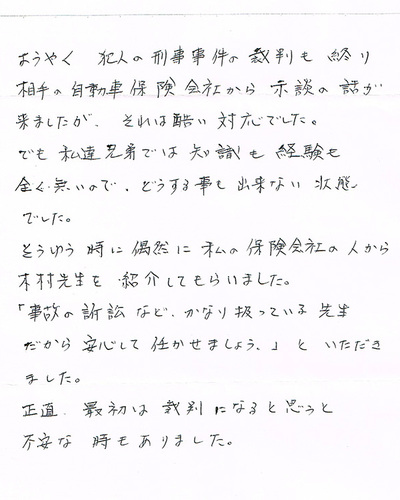 ようやく 犯人の刑事事件の裁判も終り
相手の自動車保険会社から示談の話が
来ましたが、それは酷い対応でした。
でも私達兄弟では知識も経験も
全く無いので、どうする事も出来ない状態
でした。
そうゆう時に偶然に私の保険会社の人から
木村先生を紹介してもらいました。
「事故の訴訟など、かなり扱っている先生
だから安心して任かせましょう、」と いただき
ました。
正直、最初は裁判になると思うと
不安な時もありました。